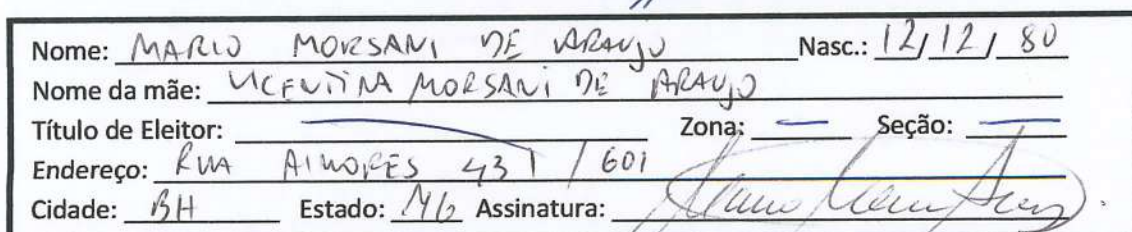 Nome: MARIO MORSANI DE ARAUJO Nasc.: 12/12/80
Nome da mãe: VICENTINA MORSANI DE ARAUJO
Título de Eleitor: — Zona: — Seção: —
Endereço: RUA AIMORES 431/601
Cidade: BH Estado: MG Assinatura: